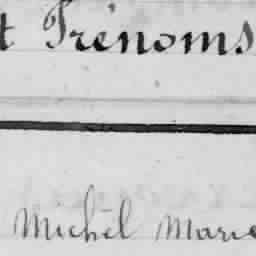 t Prénoms
Michel Marie